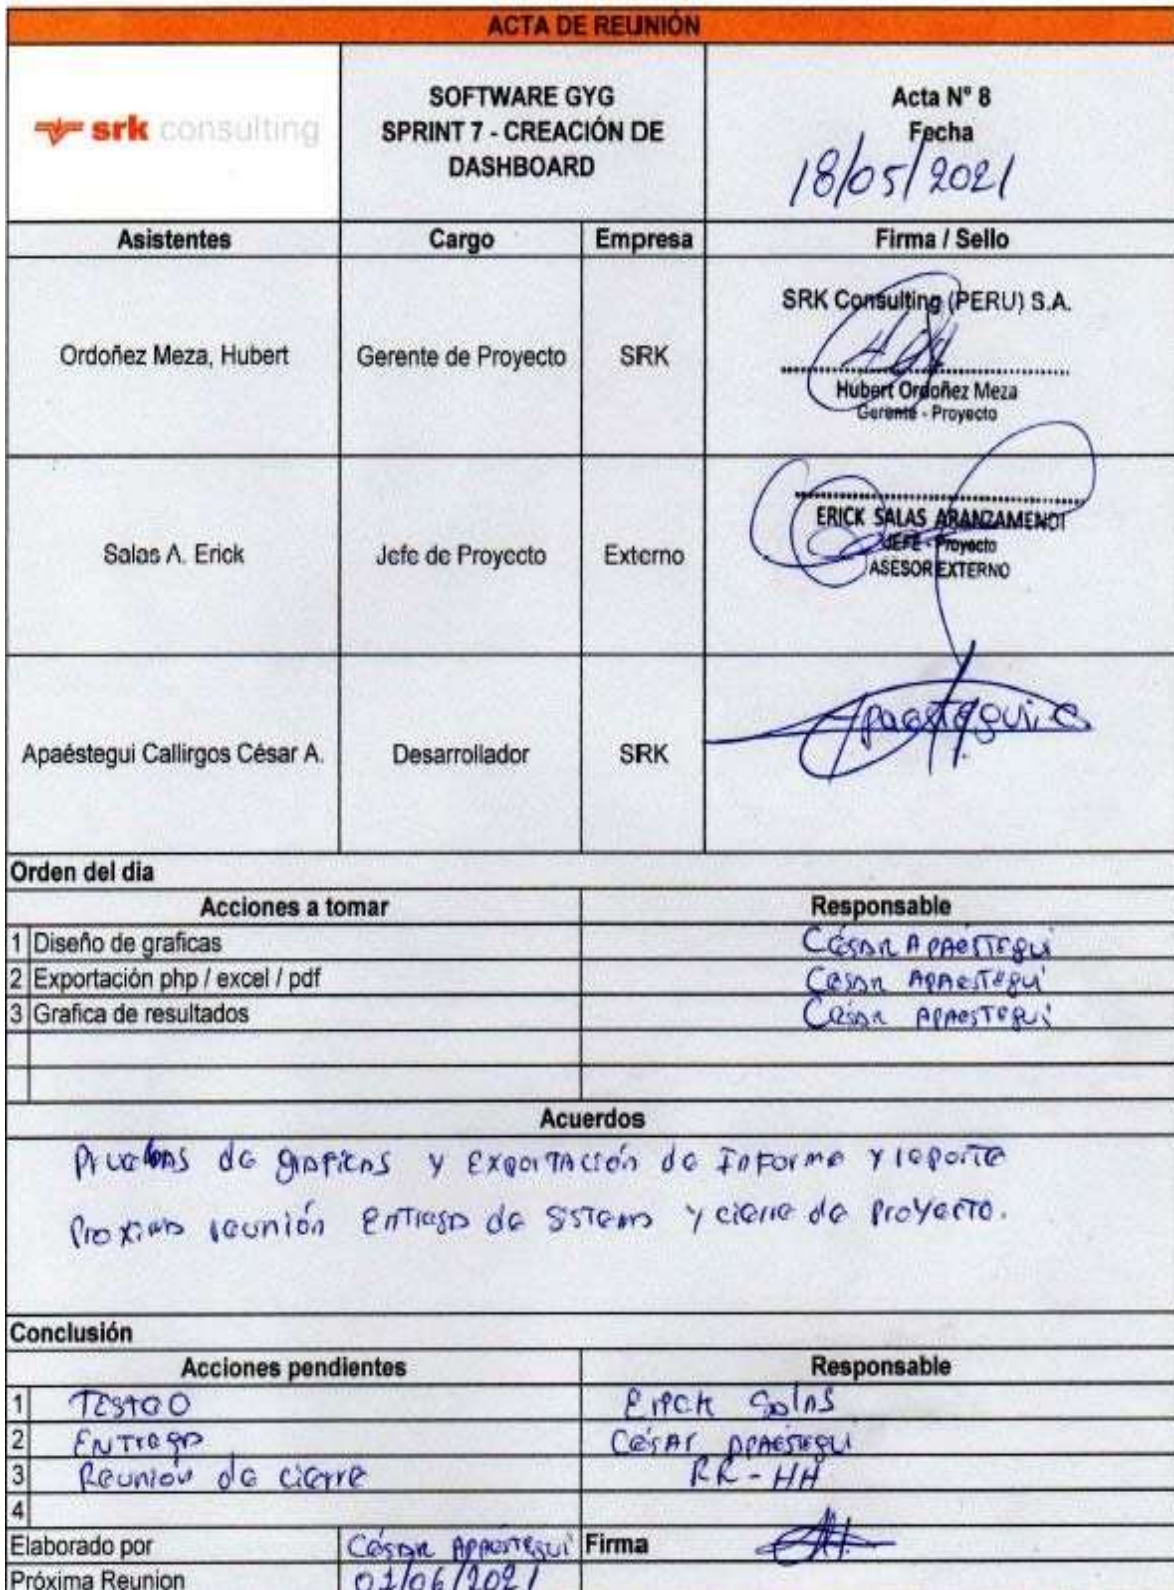 ACTA DE REUNIÓN
srk consulting
SOFTWARE GYG
SPRINT 7 - CREACIÓN DE
DASHBOARD
Acta N° 8
Fecha
18/05/2021
Asistentes Cargo Empresa Firma / Sello
Ordoñez Meza, Hubert Gerente de Proyecto SRK
SRK Consulting (PERU) S.A.
Hubert Ordoñez Meza
Gerente - Proyecto
Salas A. Erick Jefe de Proyecto Externo
ERICK SALAS ARANZAMENDI
JEFE - Proyecto
ASESOR EXTERNO
Apaéstegui Callirgos César A. Desarrollador SRK
Apaestegui C
Orden del dia
Acciones a tomar Responsable
1 Diseño de graficas César Apaéstegui
2 Exportación php / excel / pdf César Apaestegui
3 Grafica de resultados César Apaestegui
Acuerdos
Pruebas de graficas y Exportación de Informe y reporte
Proxima reunión Entrega de Sistema y cierre de Proyecto.
Conclusión
Acciones pendientes Responsable
1 Testeo Erick Salas
2 Entrega César Apaéstegui
3 Reunión de cierre RR-HH
4
Elaborado por César Apaéstegui Firma
Próxima Reunion 01/06/2021